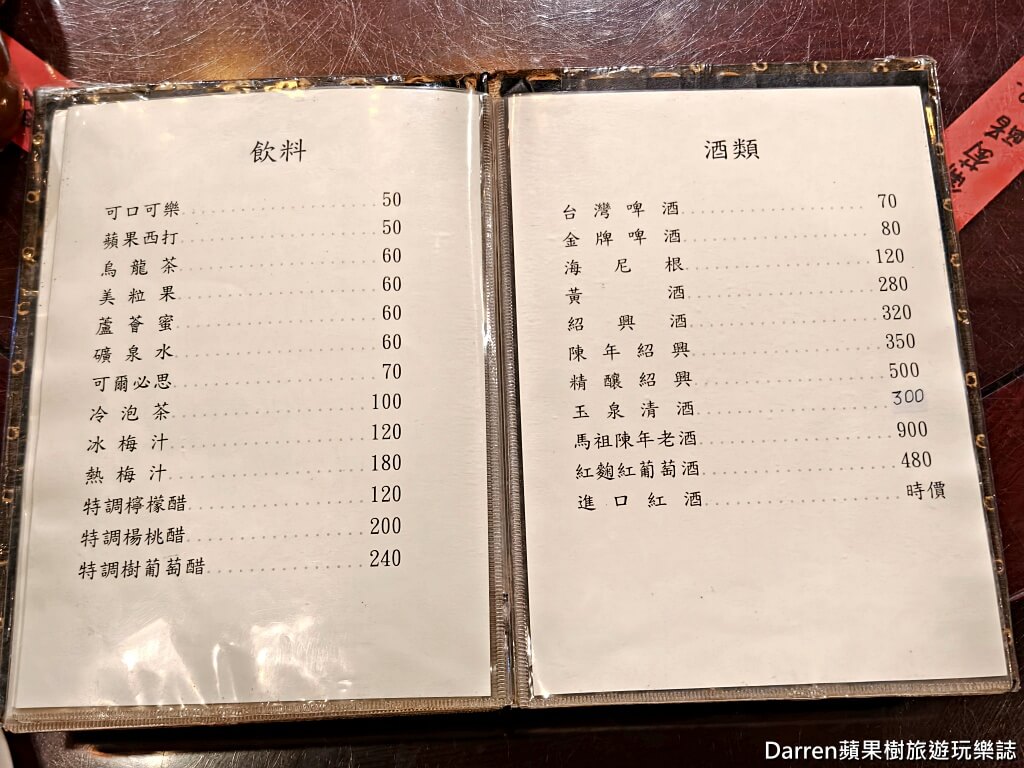 飲料
可口可樂 50
蘋果西打 50
烏龍茶 60
美粒果 60
蘆薈蜜 60
礦泉水 60
可爾必思 70
冷泡茶 100
冰梅汁 120
熱梅汁 180
特調檸檬醋 120
特調楊桃醋 200
特調樹葡萄醋 240
酒類
台灣啤酒 70
金牌啤酒 80
海尼根 120
黃酒 280
紹興酒 320
陳年紹興 350
精釀紹興 500
玉泉清酒 300
馬祖陳年老酒 900
紅麴紅葡萄酒 480
進口紅酒 時價
Darren蘋果樹旅遊玩樂誌